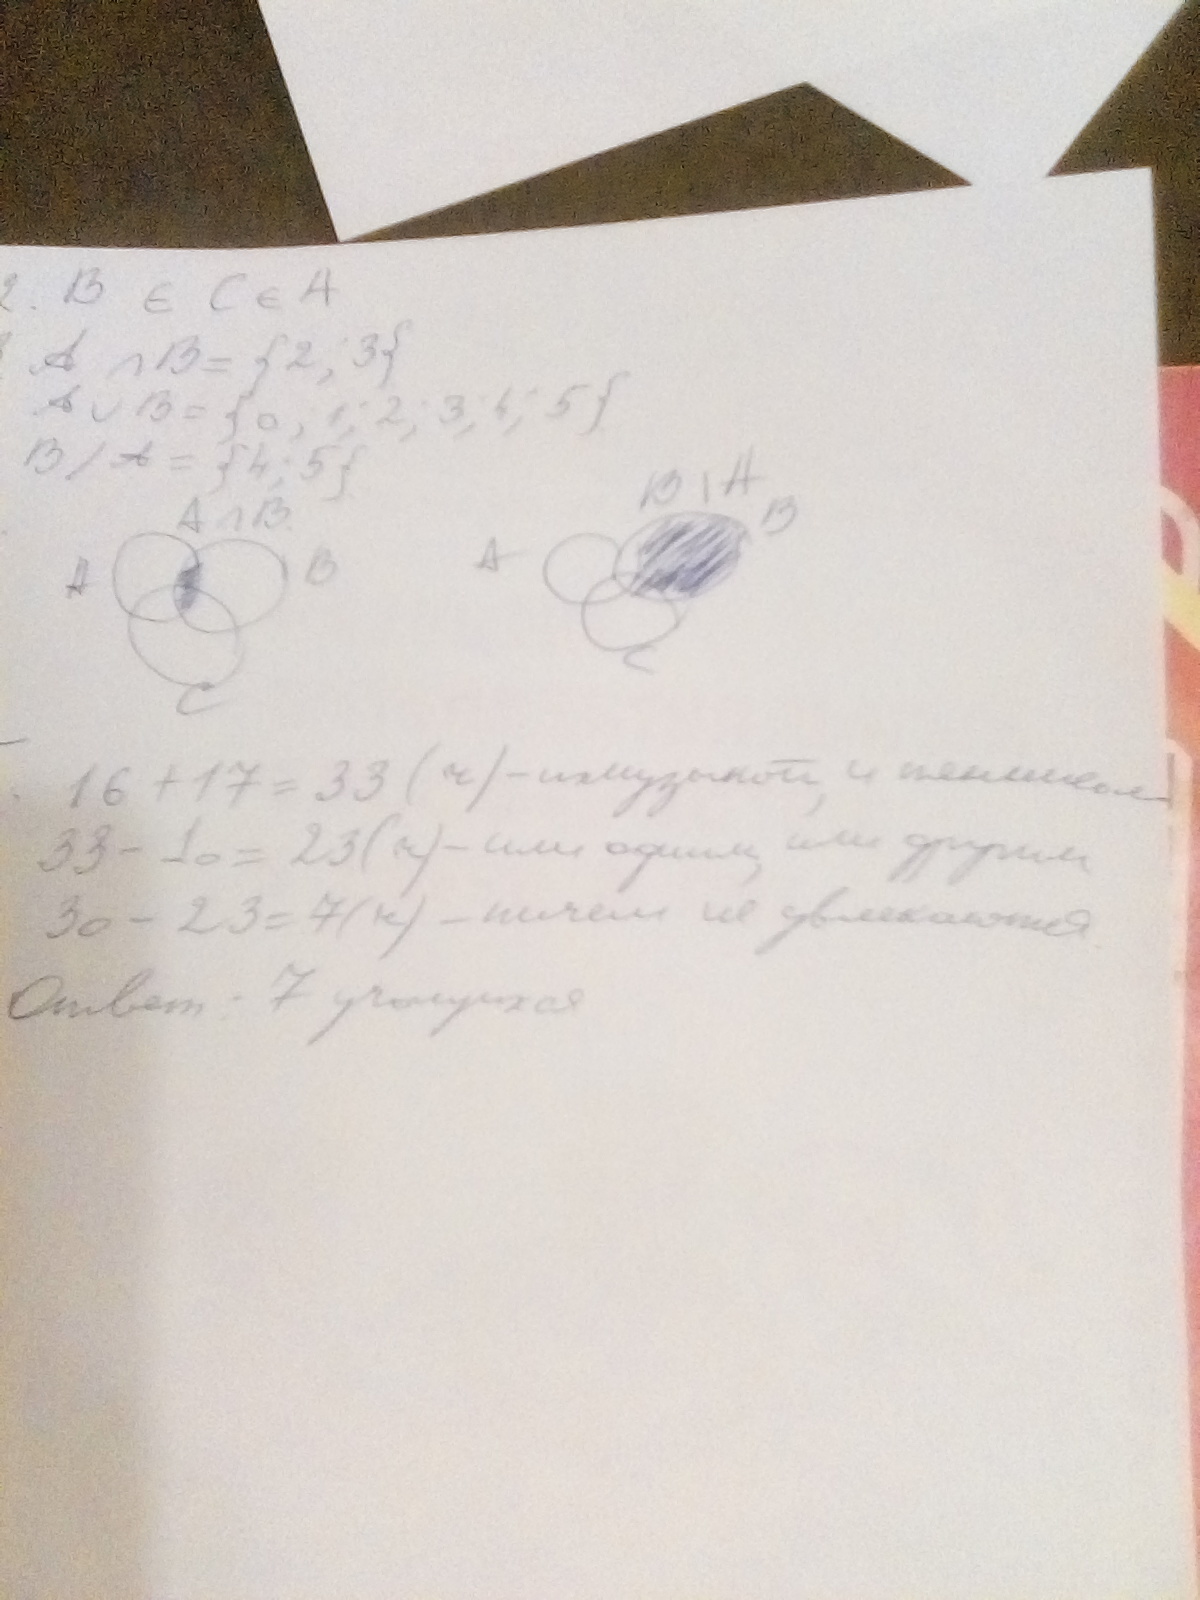 2. B ∈ C ∈ A
A ∩ B = {2; 3}
A ∪ B = {0; 1; 2; 3; 4; 5}
B / A = {4; 5}
A ∩ B
B \ A
A B
A B
C
C
16 + 17 = 33 (ч) - и музыкой, и теннисом
33 - 10 = 23 (ч) - или одним, или другим
30 - 23 = 7 (ч) - ничем не увлекаются.
Ответ: 7 учащихся